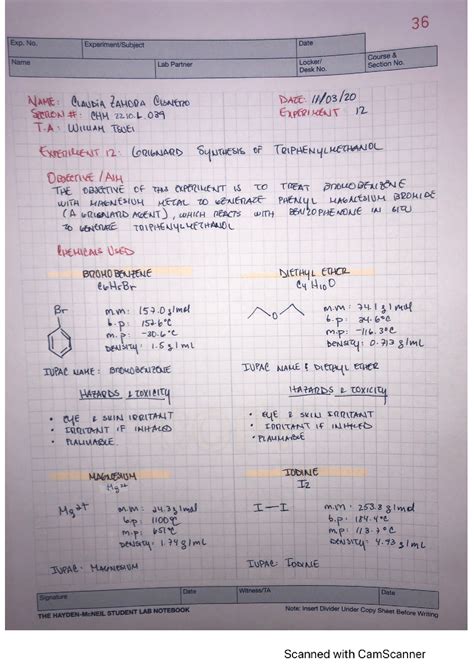 36
Exp. No. Experiment/Subject Date
Name Lab Partner Locker/ Desk No. Course & Section No.
NAME: CLAUDIA ZAMORA CISNERO DATE: 11/03/20
SECTION #: CHM 2210.L.039 EXPERIMENT 12
T.A: WILLIAM TSUEI
EXPERIMENT 12: GRIGNARD SYNTHESIS OF TRIPHENYLMETHANOL
OBJECTIVE / AIM
THE OBJECTIVE OF THIS EXPERIMENT IS TO TREAT BROMOBENZENE
WITH MAGNESIUM METAL TO GENERATE PHENYL MAGNESIUM BROMIDE
(A GRIGNARD AGENT), WHICH REACTS WITH BENZOPHENONE IN SITU
TO GENERATE TRIPHENYLMETHANOL
CHEMICALS USED
BROMOBENZENE DIETHYL ETHER
C6H5Br C4H10O
Br m.m: 157.0 g/mol O m.m: 74.1 g/mol
b.p: 156°C b.p: 34.6°C
m.p: -30.6°C m.p: -116.3°C
DENSITY: 1.5 g/mL DENSITY: 0.713 g/mL
IUPAC NAME: BROMOBENZENE IUPAC NAME: DIETHYL ETHER
HAZARDS & TOXICITY HAZARDS & TOXICITY
• EYE & SKIN IRRITANT • EYE & SKIN IRRITANT
• IRRITANT IF INHALED • IRRITANT IF INHALED
• FLAMMABLE • FLAMMABLE
MAGNESIUM IODINE
Mg2+ I2
Mg2+ m.m: 24.3 g/mol I—I m.m: 253.8 g/mol
b.p: 1100°C b.p: 184.4°C
m.p: 651°C m.p: 113.7°C
DENSITY: 1.74 g/mL DENSITY: 4.93 g/mL
IUPAC: MAGNESIUM IUPAC: IODINE
Signature Date Witness/TA Date
THE HAYDEN-McNEIL STUDENT LAB NOTEBOOK Note: Insert Divider Under Copy Sheet Before Writing
Scanned with CamScanner